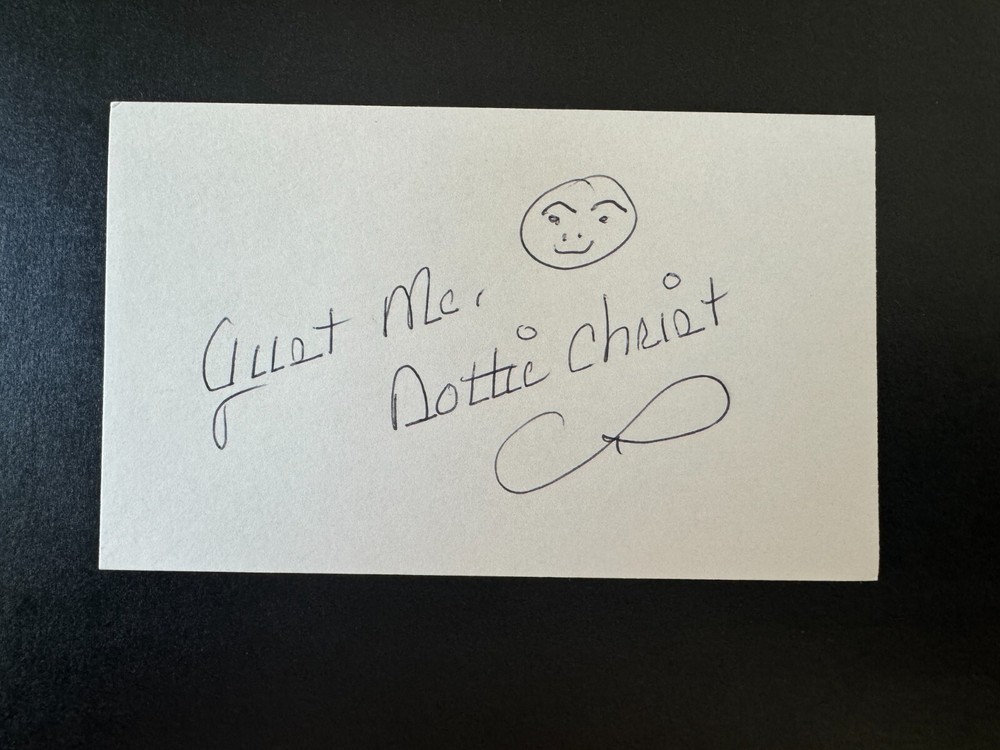 Just Me,
Dottie Christ